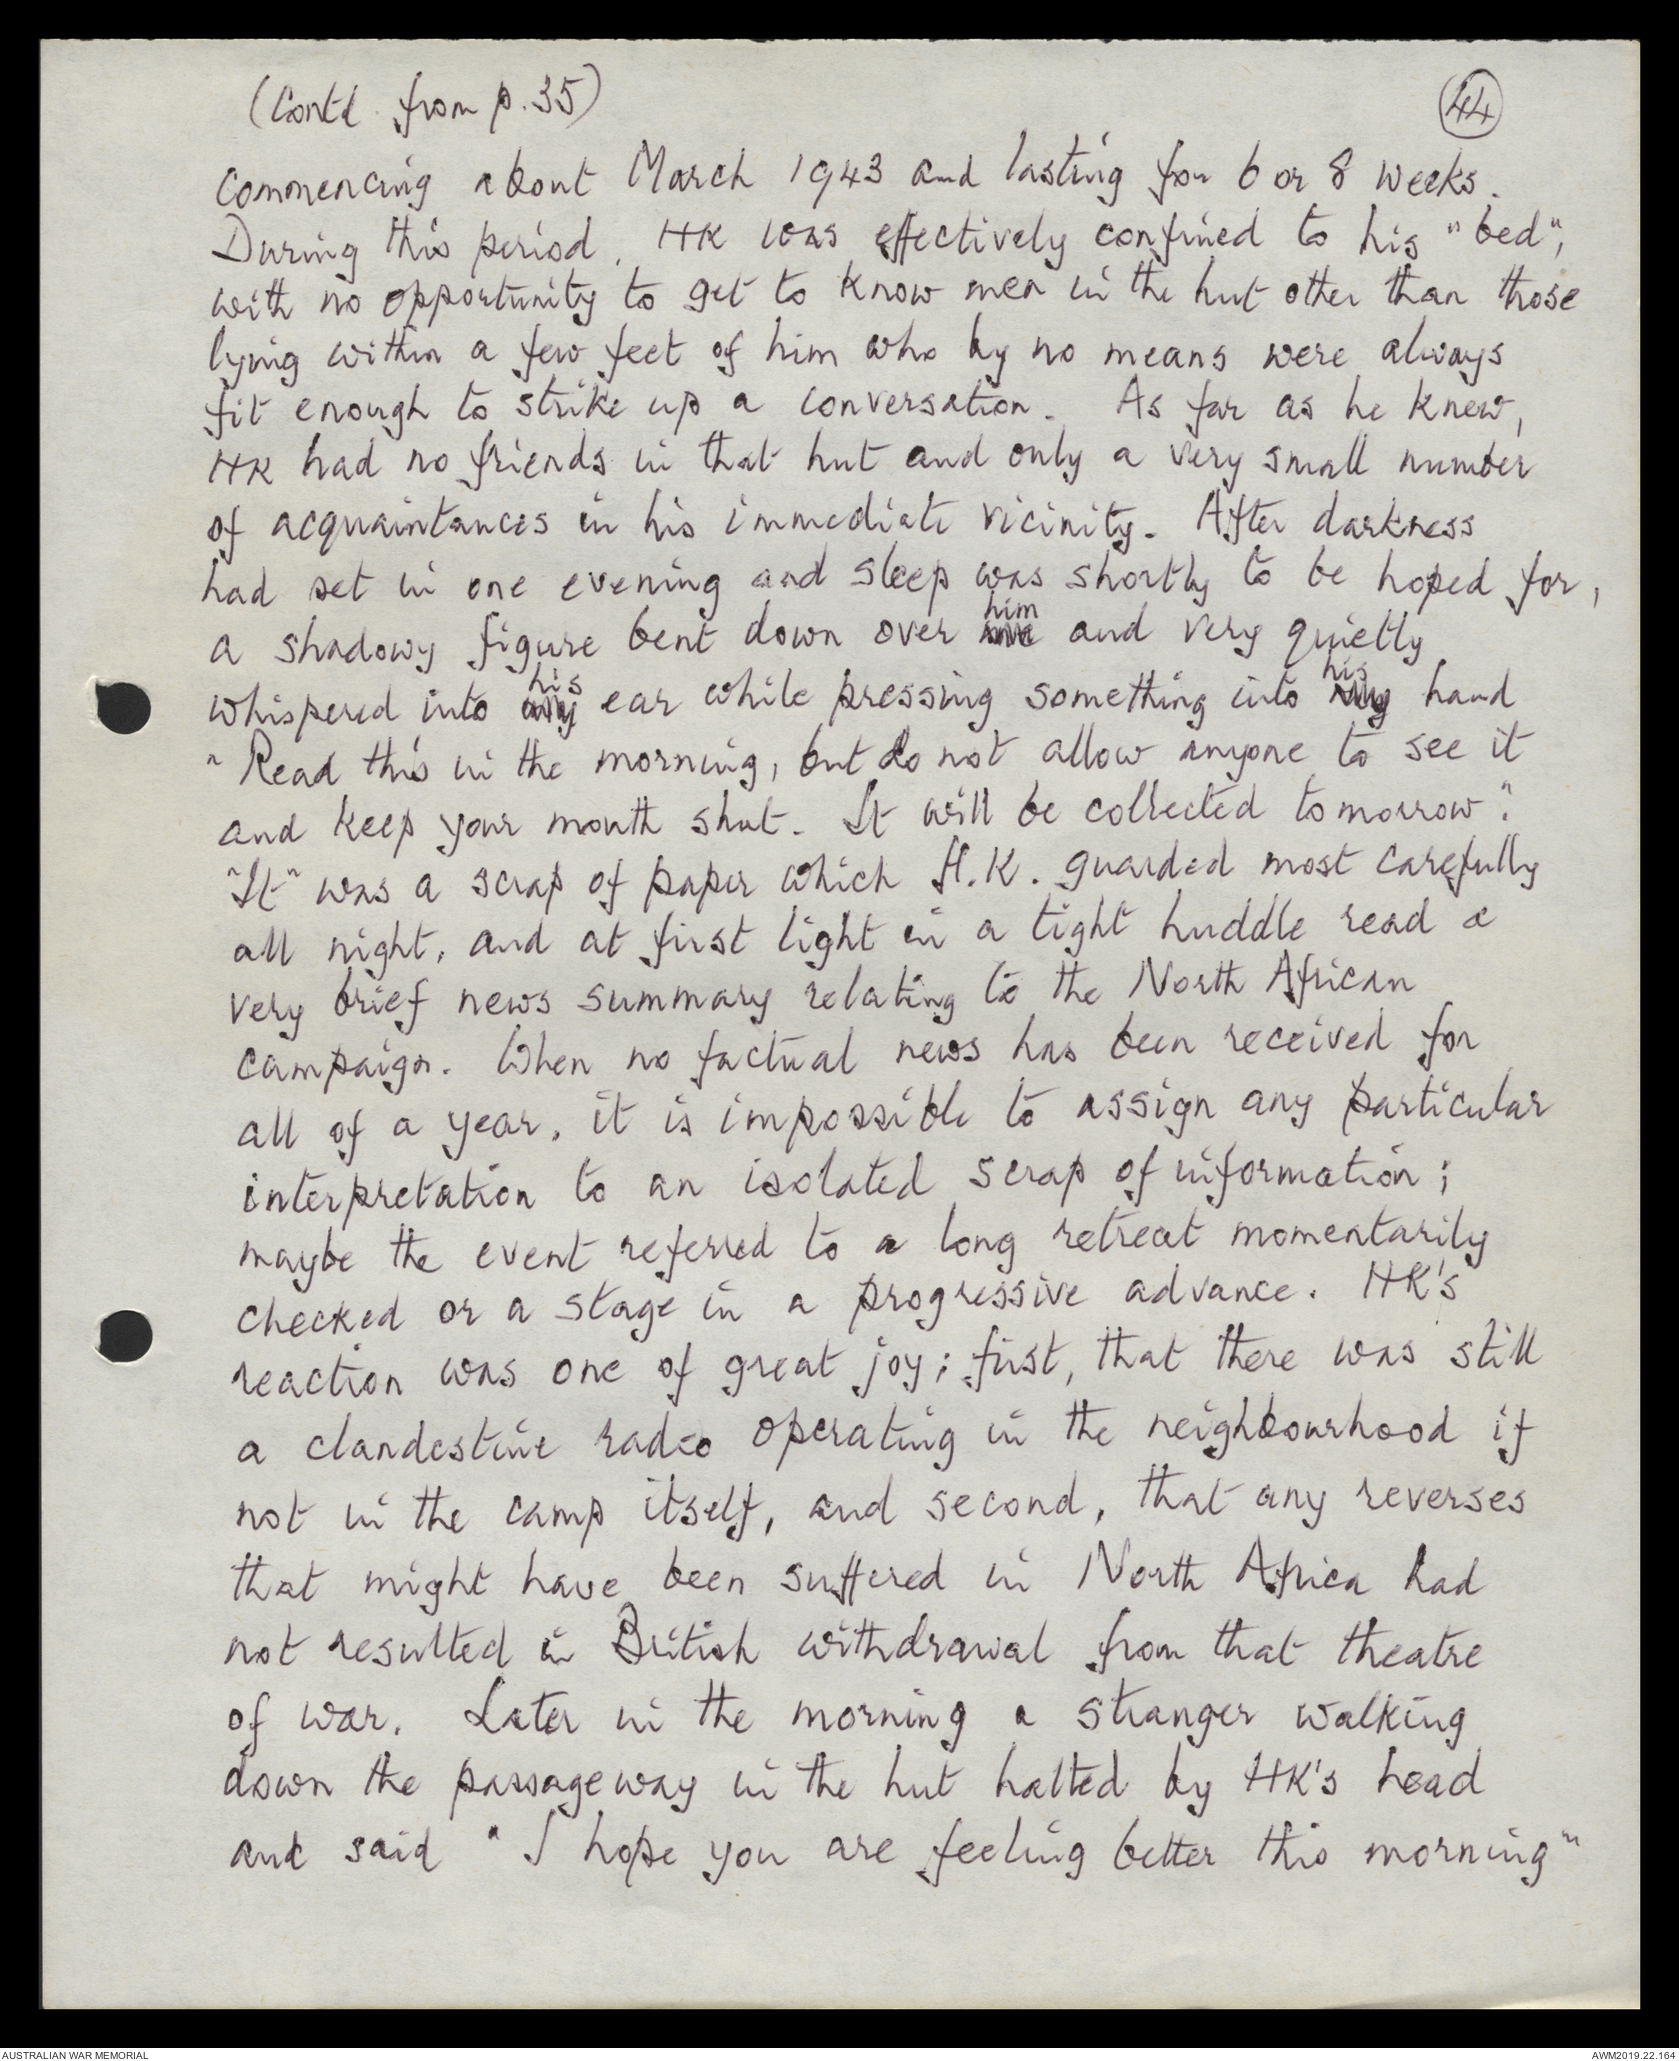 (Contd. from p. 35)
44
commencing about March 1943 and lasting for 6 or 8 weeks.
During this period. HK was effectively confined to his "bed",
with no opportunity to get to know men in the hut other than those
lying within a few feet of him who by no means were always
fit enough to strike up a conversation. As far as he knew,
HK had no friends in that hut and only a very small number
of acquaintances in his immediate vicinity. After darkness
had set in one evening and sleep was shortly to be hoped for,
a shadowy figure bent down over him and very quietly
whispered into his ear while pressing something into his hand
"Read this in the morning, but do not allow anyone to see it
and keep your mouth shut. It will be collected tomorrow".
"It" was a scrap of paper which H.K. guarded most carefully
all night, and at first light in a tight huddle read a
very brief news summary relating to the North African
campaign. When no factual news has been received for
all of a year, it is impossible to assign any particular
interpretation to an isolated scrap of information;
maybe the event referred to a long retreat momentarily
checked or a stage in a progressive advance. HK's
reaction was one of great joy; first, that there was still
a clandestine radio operating in the neighbourhood if
not in the camp itself, and second, that any reverses
that might have been suffered in North Africa had
not resulted in British withdrawal from that theatre
of war. Later in the morning a stranger walking
down the passageway in the hut halted by HK's head
and said "I hope you are feeling better this morning"
AUSTRALIAN WAR MEMORIAL
AWM2019.22.164